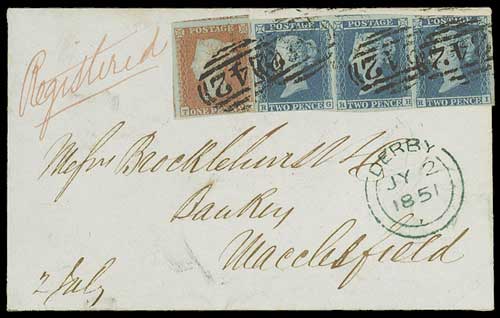 Registered
POSTAGE POSTAGE POSTAGE
ONE PENNY TWO PENCE TWO PENCE TWO PENCE
42 42 42
Messrs Brocklehurst
Bankers
Macclesfield
2 July
DERBY
JY 2
1851